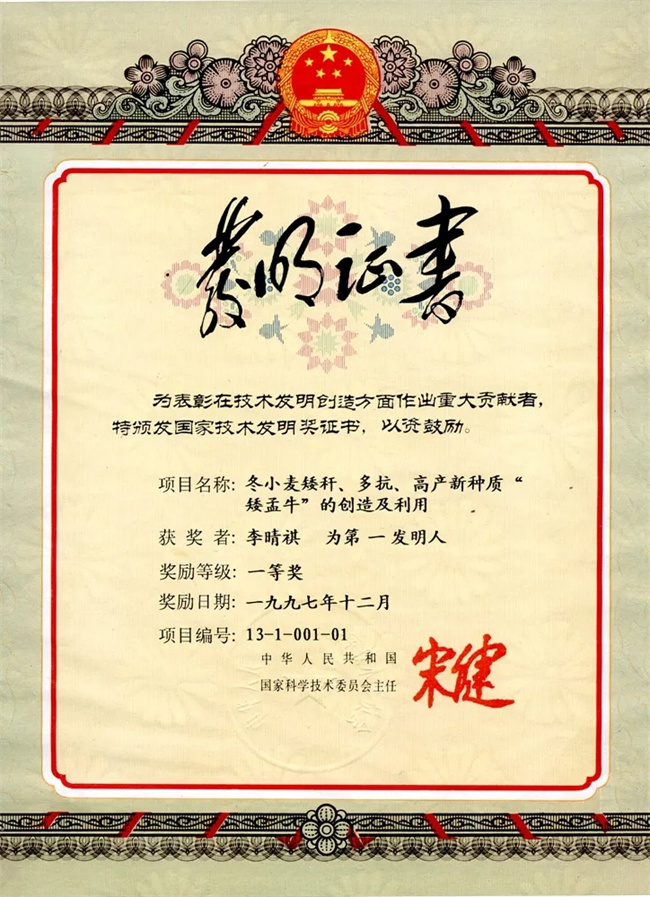 發明证書
为表彰在技术发明创造方面作出重大贡献者，
特颁发国家技术发明奖证书，以资鼓励。
项目名称：冬小麦矮秆、多抗、高产新种质“
矮孟牛”的创造及利用
获奖者：李晴祺 为第一发明人
奖励等级：一等奖
奖励日期：一九九七年十二月
项目编号：13-1-001-01
中华人民共和国
国家科学技术委员会主任
宋健